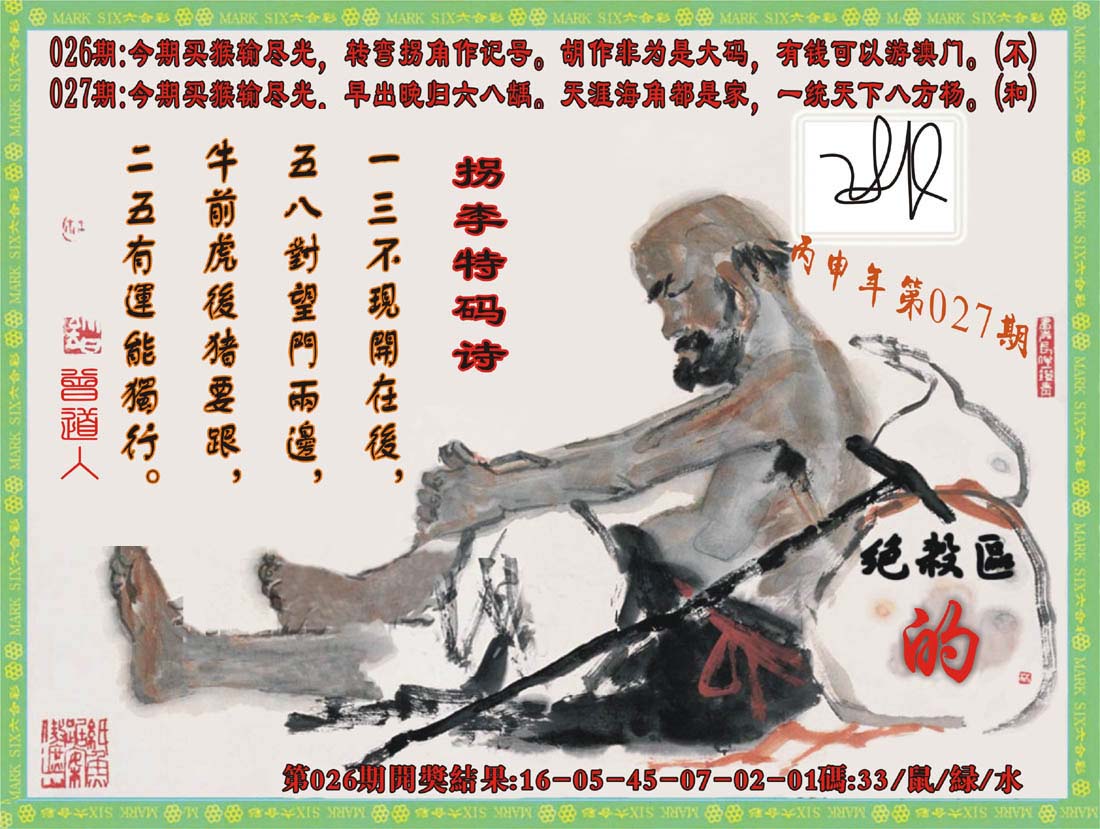 MARK SIX六合彩
026期:今期买猴输尽光，转弯拐角作记号。胡作非为是大码，有钱可以游澳门。(不)
027期:今期买猴输尽光．早出晚归六八龋。天涯海角都是家，一统天下八方杨。(和)
丙申年第027期
拐李特码诗
一三不现開在後，
五八對望門兩邊，
牛前虎後猪要跟，
二五有運能獨行。
曾道人
绝殺區
的
第026期開獎結果:16-05-45-07-02-01碼:33/鼠/緑/水